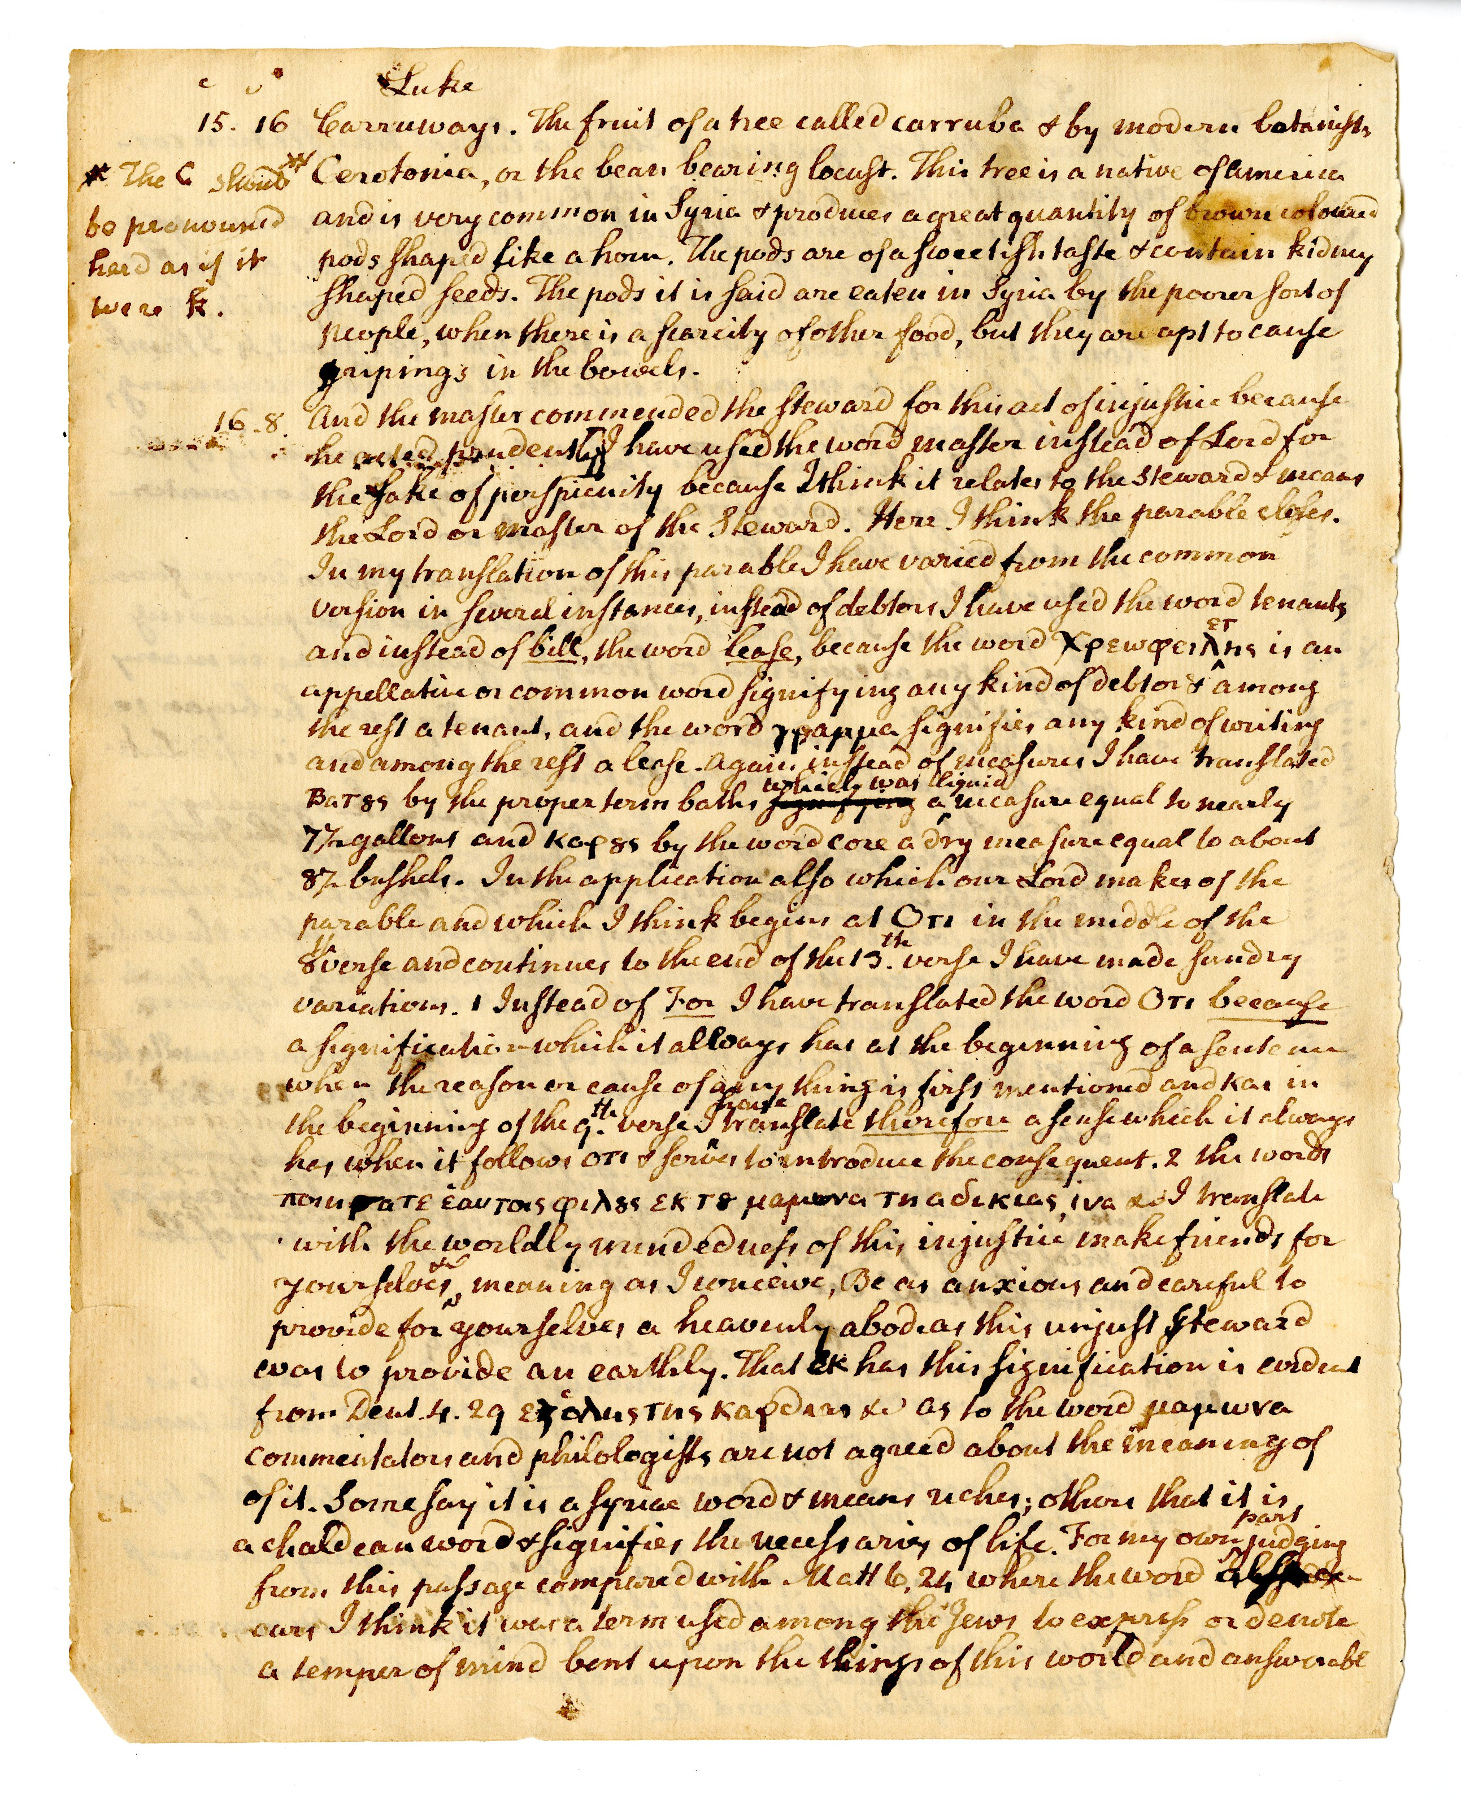 c v Luke
15. 16 Carruways. The fruit of a tree called carruba & by modern botanists
* The C should be pronounced hard as if it were k.
* Cerotonia, or the bean bearing locust. This tree is a native of america
and is very common in Syria & produces a great quantity of brown coloured
pods shaped like a horn. The pods are of a sweetish taste & contain kidney
shaped seeds. The pods it is said are eaten in Syria by the poorer sort of
people, when there is a scarcity of other food, but they are apt to cause
gripings in the bowels.
16. 8. And the master commended the steward for this act of injustice because
he acted prudently] I have used the word master instead of Lord for
the sake of perspicuity because I think it relates to the steward & means
the Lord or master of the Steward. Here I think the parable closes.
In my translation of this parable I have varied from the common
version in several instances, instead of debtors I have used the word tenants
and instead of bill, the word lease, because the word Χρεωφειλετης is an
appellative or common word signifying any kind of debtor & among
the rest a tenant, and the word γραμμα signifies any kind of writing
and among the rest a lease. Again instead of measures I have translated
Βατȣς by the proper term baths signifying which was a liquid measure equal to nearly
7½ gallons and κορȣς by the word core a dry measure equal to about
8½ bushels. In the application also which our Lord makes of the
parable and which I think begins at Οτι in the middle of the
8th verse and continues to the end of the 13.th verse I have made sundry
variations. 1 Instead of For I have translated the word Οτι because
a signification which it allways has at the beginning of a sentence
when the reason or cause of any thing is first mentioned and και in
the beginning of the 9.th verse I have translate therefore a sense which it always
has when it follows οτι & serves to introduce the consequent. 2 the words
ποιησατε ἑαυτοις φιλȣς εκ τȣ μαμωνα τη αδικιας, ινα &c I translate
with the worldly mindedness of this injustice make friends for
yourselves &c, meaning as I conceive, Be as anxious and careful to
provide for yourselves a heavenly abode as this unjust steward
was to provide an earthly. That εκ has this signification is evident
from Deut. 4. 29 εξ ὁλης της καρδιας &c as to the word μαμωνα
commentators and philologists are not agreed about the meaning of
of it. Some say it is a syriac word & means riches; others that it is
a chaldean word & signifies the necessaries of life. For my own part judging
from this passage compared with Matt 6, 24 where the word
ours I think it was a term used among the Jews to express or denote
a temper of mind bent upon the things of this world and answerable